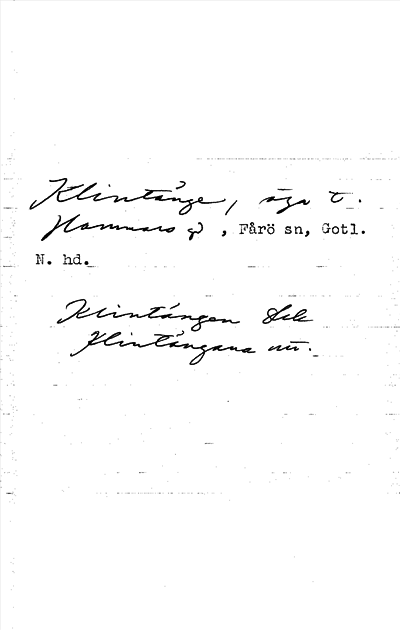 Klintänge, äga t.
Hammars gd, Fårö sn, Gotl.
N. hd.
Klintängen Ekk
Klintängana nu.